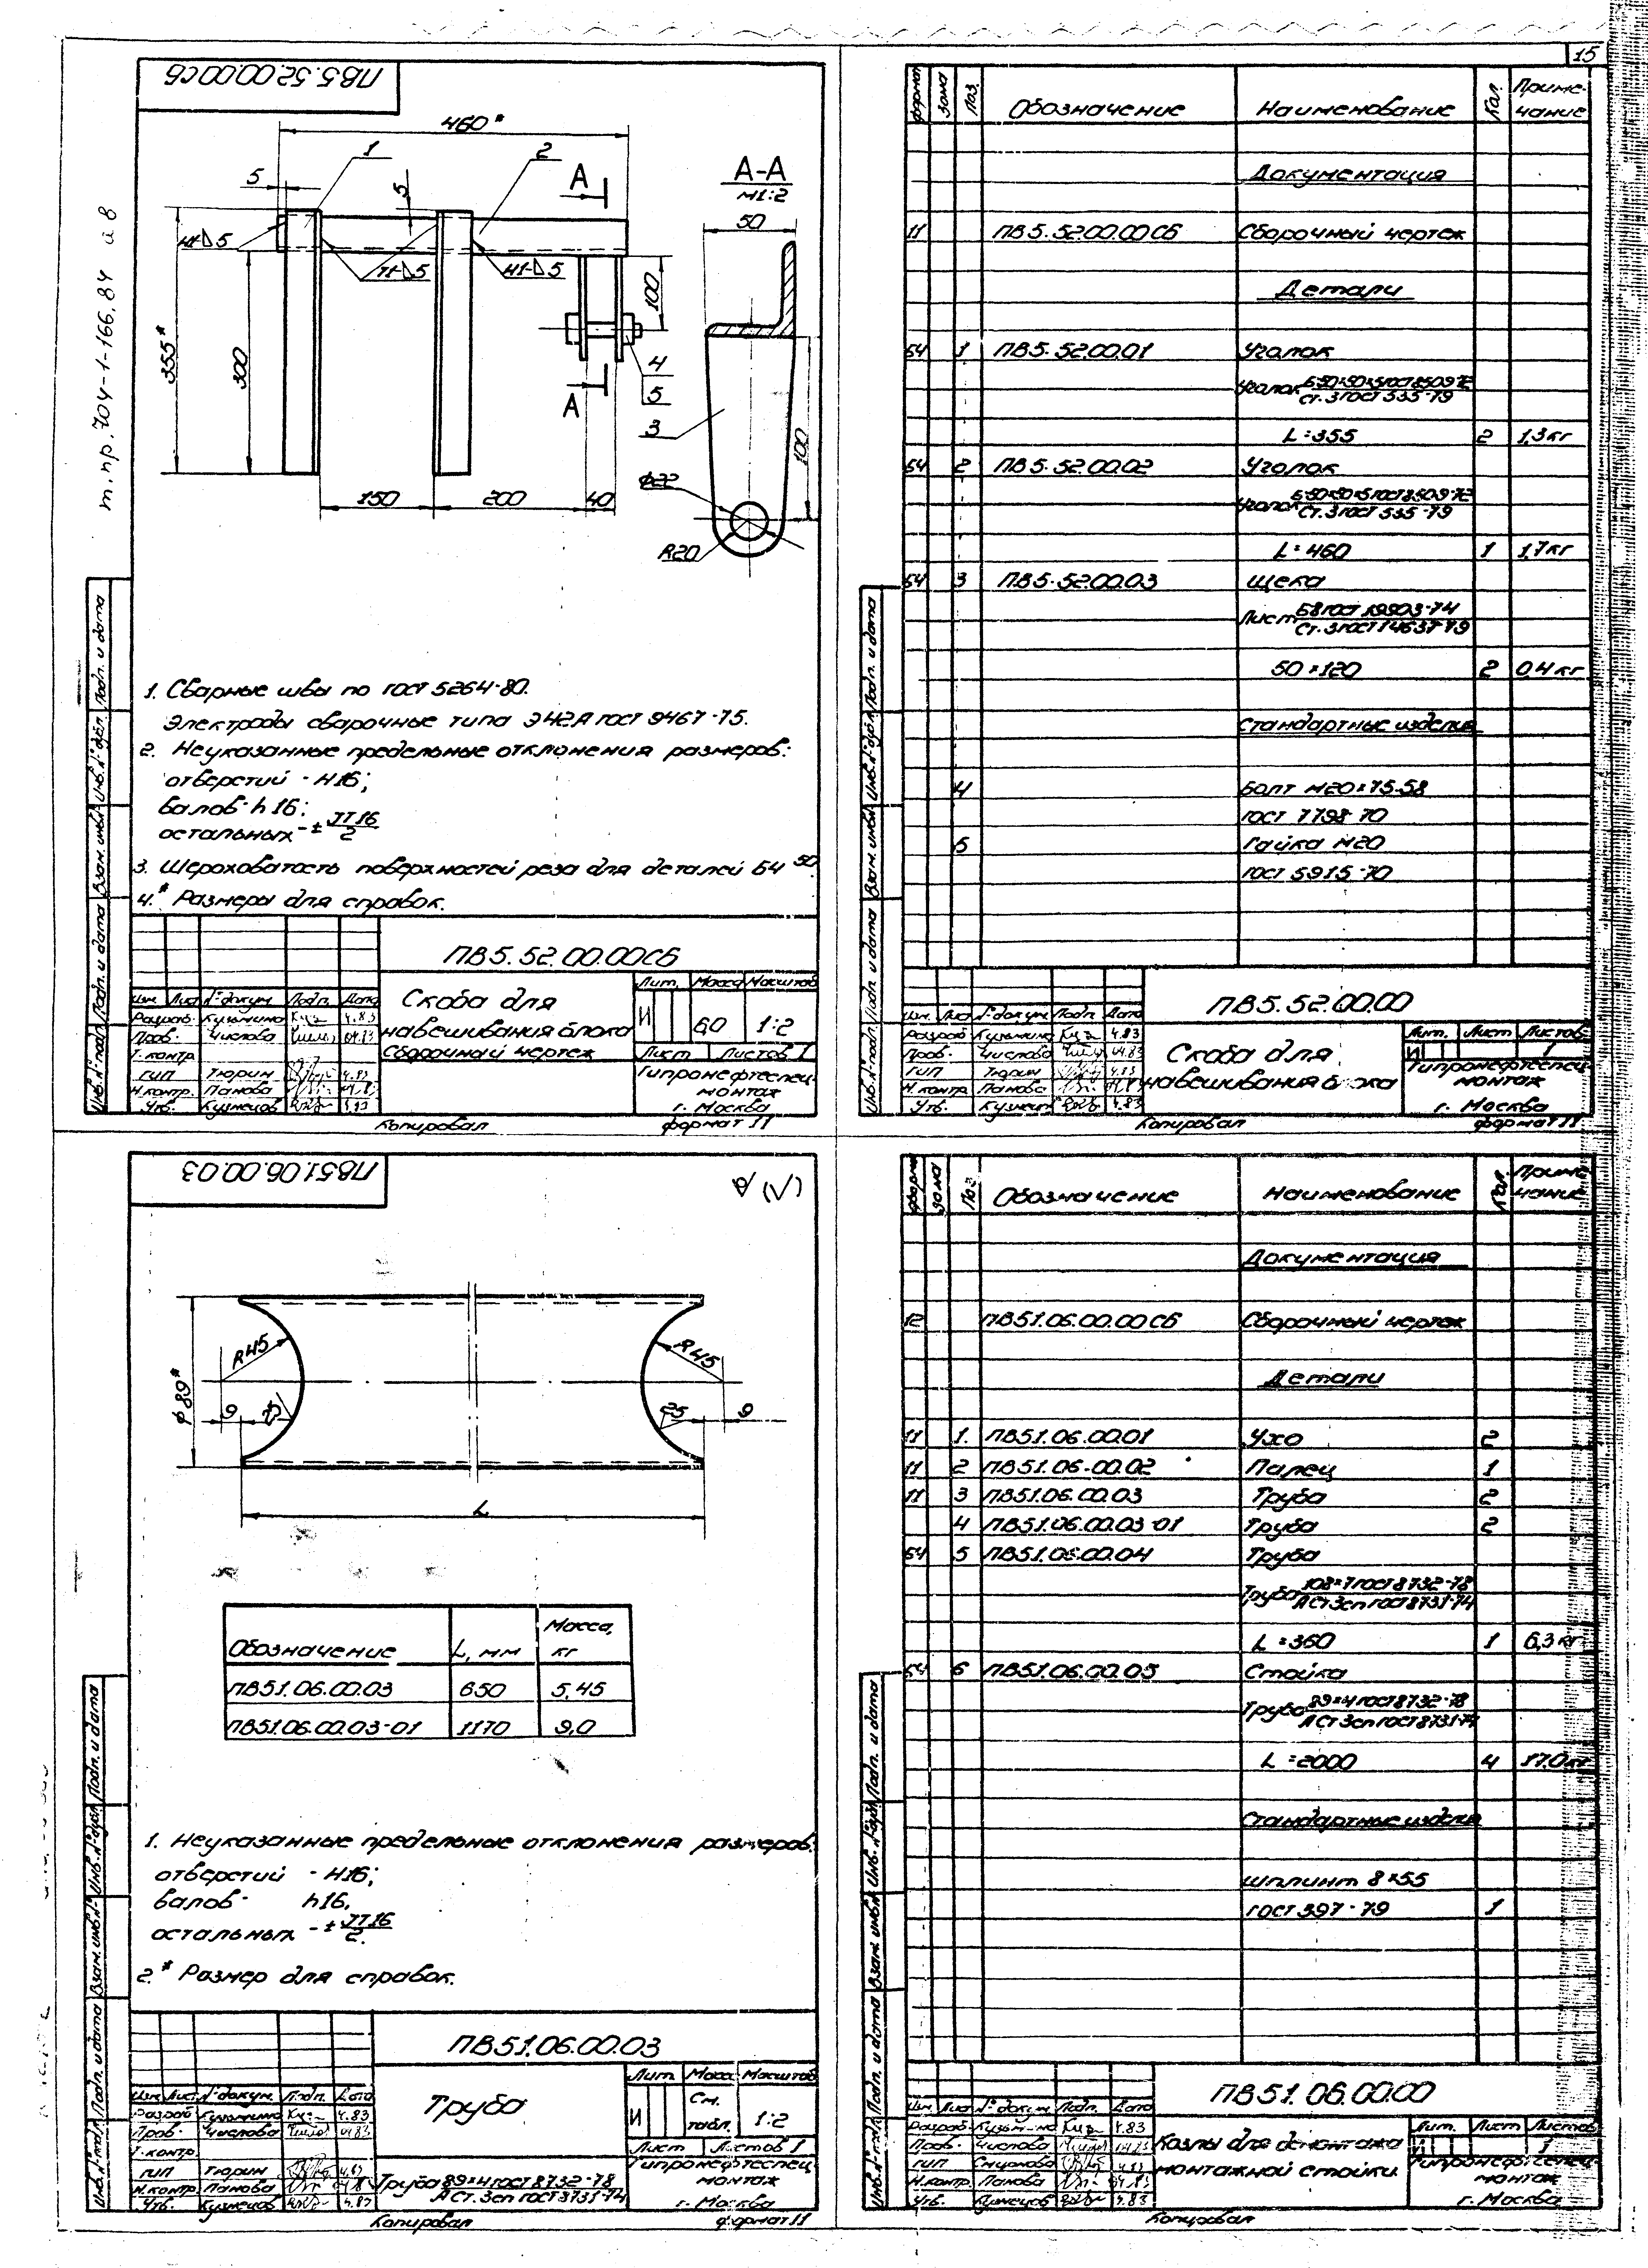 15
т. пр. 704-1-166.84 а 8
ПВ5.52.00.00СБ
460*
1
2
5
5
А
А-А
М1:2
50
Н1-△5
Т1-△5
Н1-△5
100
355*
300
4
5
А
3
100
150
200
40
ф22
R20
1. Сварные швы по ГОСТ 5264-80.
Электроды сварочные типа Э42А ГОСТ 9467-75.
2. Неуказанные предельные отклонения размеров:
отверстий - Н16;
валов - h16;
остальных - ± JT16/2
3. Шероховатость поверхностей реза для деталей Б4 50
4.* Размеры для справок.
ПВ5.52.00.00СБ
Изм. Лист № докум. Подп. Дата
Разраб. Кузьмина 4.83
Пров. Числова 04.83
Т. контр.
ГИП Тюрин 4.83
Н.контр. Панова 04.83
Утв. Кузнецов 4.83
Скоба для
навешивания блока
Сборочный чертеж
Лит. Масса Масштаб
И 6,0 1:2
Лист Листов 1
Гипронефтеспец-
монтаж
г. Москва
Копировал формат 11
Инв. № подл. Подп. и дата Взам. инв. № Инв. № дубл. Подп. и дата
Формат Зона Поз. Обозначение Наименование Кол. Приме-
чание
Документация
11 ПВ5.52.00.00СБ Сборочный чертеж
Детали
Б4 1 ПВ5.52.00.01 Уголок
Уголок Б-50×50×5 ГОСТ 8509-72
Ст.3 ГОСТ 535-79
L=355 2 1,3кг
Б4 2 ПВ5.52.00.02 Уголок
Уголок Б-50×50×5 ГОСТ 8509-72
Ст.3 ГОСТ 535-79
L=460 1 1,7кг
Б4 3 ПВ5.52.00.03 Щека
Лист Б8 ГОСТ 19903-74
Ст.3 ГОСТ 14637-79
50×120 2 0,4кг
Стандартные изделия
4 Болт М20×75.58
ГОСТ 7798-70
5 Гайка М20
ГОСТ 5915-70
ПВ5.52.00.00
Изм. Лист № докум. Подп. Дата
Разраб. Кузьмина 4.83
Пров. Числова 04.83
ГИП Тюрин 4.83
Н.контр. Панова 04.83
Утв. Кузнецов 4.83
Скоба для
навешивания блока
Лит. Лист Листов
И 1
Гипронефтеспец-
монтаж
г. Москва
Копировал формат 11
Инв. № подл. Подп. и дата Взам. инв. № Инв. № дубл. Подп. и дата
ПВ51.06.00.03
(√)
ф 89*
R45
R45
9
25
25
9
L
Обозначение L, мм Масса,
кг
ПВ51.06.00.03 650 5,45
ПВ51.06.00.03-01 1170 9,0
1. Неуказанные предельные отклонения размеров:
отверстий - Н16;
валов - h16,
остальных - ± JT16/2.
2.* Размер для справок.
ПВ51.06.00.03
Изм. Лист № докум. Подп. Дата
Разраб. Кузьмина 4.83
Пров. Числова 04.83
Т. контр.
ГИП Тюрин 4.83
Н.контр. Панова
Утв. Кузнецов 4.83
Труба
Труба 89×4 ГОСТ 8732-78
А Ст.3сп ГОСТ 8731-74
Лит. Масса Масштаб
И См. табл. 1:2
Лист Листов 1
Гипронефтеспец-
монтаж
г. Москва
Копировал формат 11
Инв. № подл. Подп. и дата Взам. инв. № Инв. № дубл. Подп. и дата
Формат Зона Поз. Обозначение Наименование Кол. Приме-
чание
Документация
12 ПВ51.06.00.00СБ Сборочный чертеж
Детали
11 1. ПВ51.06.00.01 Ухо 2
11 2 ПВ51.06.00.02 Палец 1
11 3 ПВ51.06.00.03 Труба 2
4 ПВ51.06.00.03-01 Труба 2
Б4 5 ПВ51.06.00.04 Труба
Труба 108×7 ГОСТ 8732-78
А Ст 3сп ГОСТ 8731-74
L=360 1 6,3кг
Б4 6 ПВ51.06.00.05 Стойка
Труба 89×4 ГОСТ 8732-78
А Ст 3сп ГОСТ 8731-74
L=2000 4 17,0кг
Стандартные изделия
Шплинт 8×55
ГОСТ 397-79 1
ПВ51.06.00.00
Изм. Лист № докум. Подп. Дата
Разраб. Кузьмина 4.83
Пров. Числова 04.83
ГИП Смирнова 4.83
Н.контр. Панова 04.83
Утв. Кузнецов 4.83
Козлы для демонтажа
монтажной стойки
Лит. Лист Листов
И 1
Гипронефтеспец-
монтаж
г. Москва
Копировал
Инв. № подл. Подп. и дата Взам. инв. № Инв. № дубл. Подп. и дата